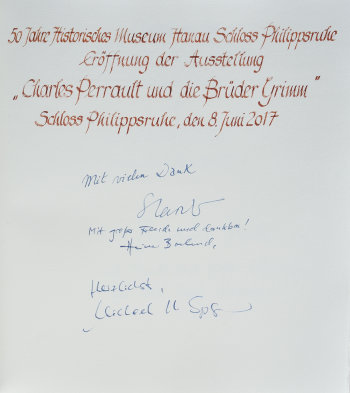 50 Jahre Historisches Museum Hanau Schloss Philippsruhe
Eröffnung der Ausstellung
„Charles Perrault und die Brüder Grimm“
Schloss Philippsruhe, den 8. Juni 2017
Mit vielen Dank
Mit großer Freude und dankbar!
Herzlichst,
Michael H